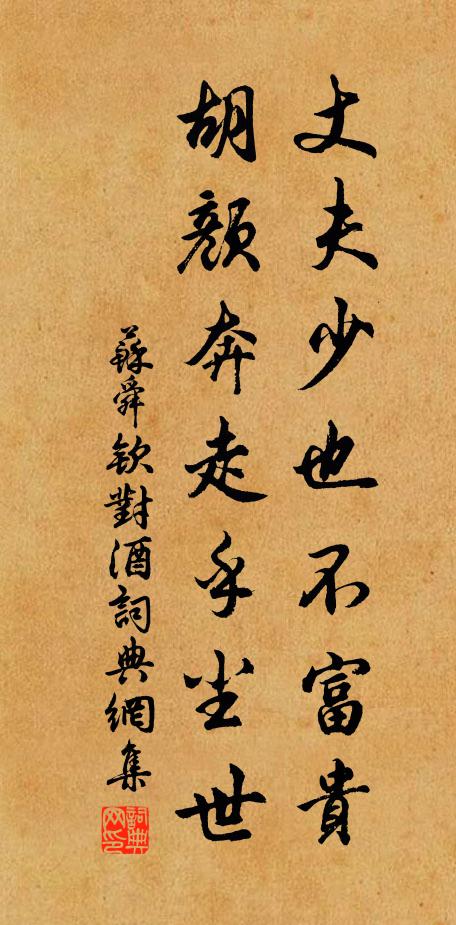 丈夫少也不富貴
胡顏奔走乎尘世
蘇舜欽對酒詞典網集
詞典网印